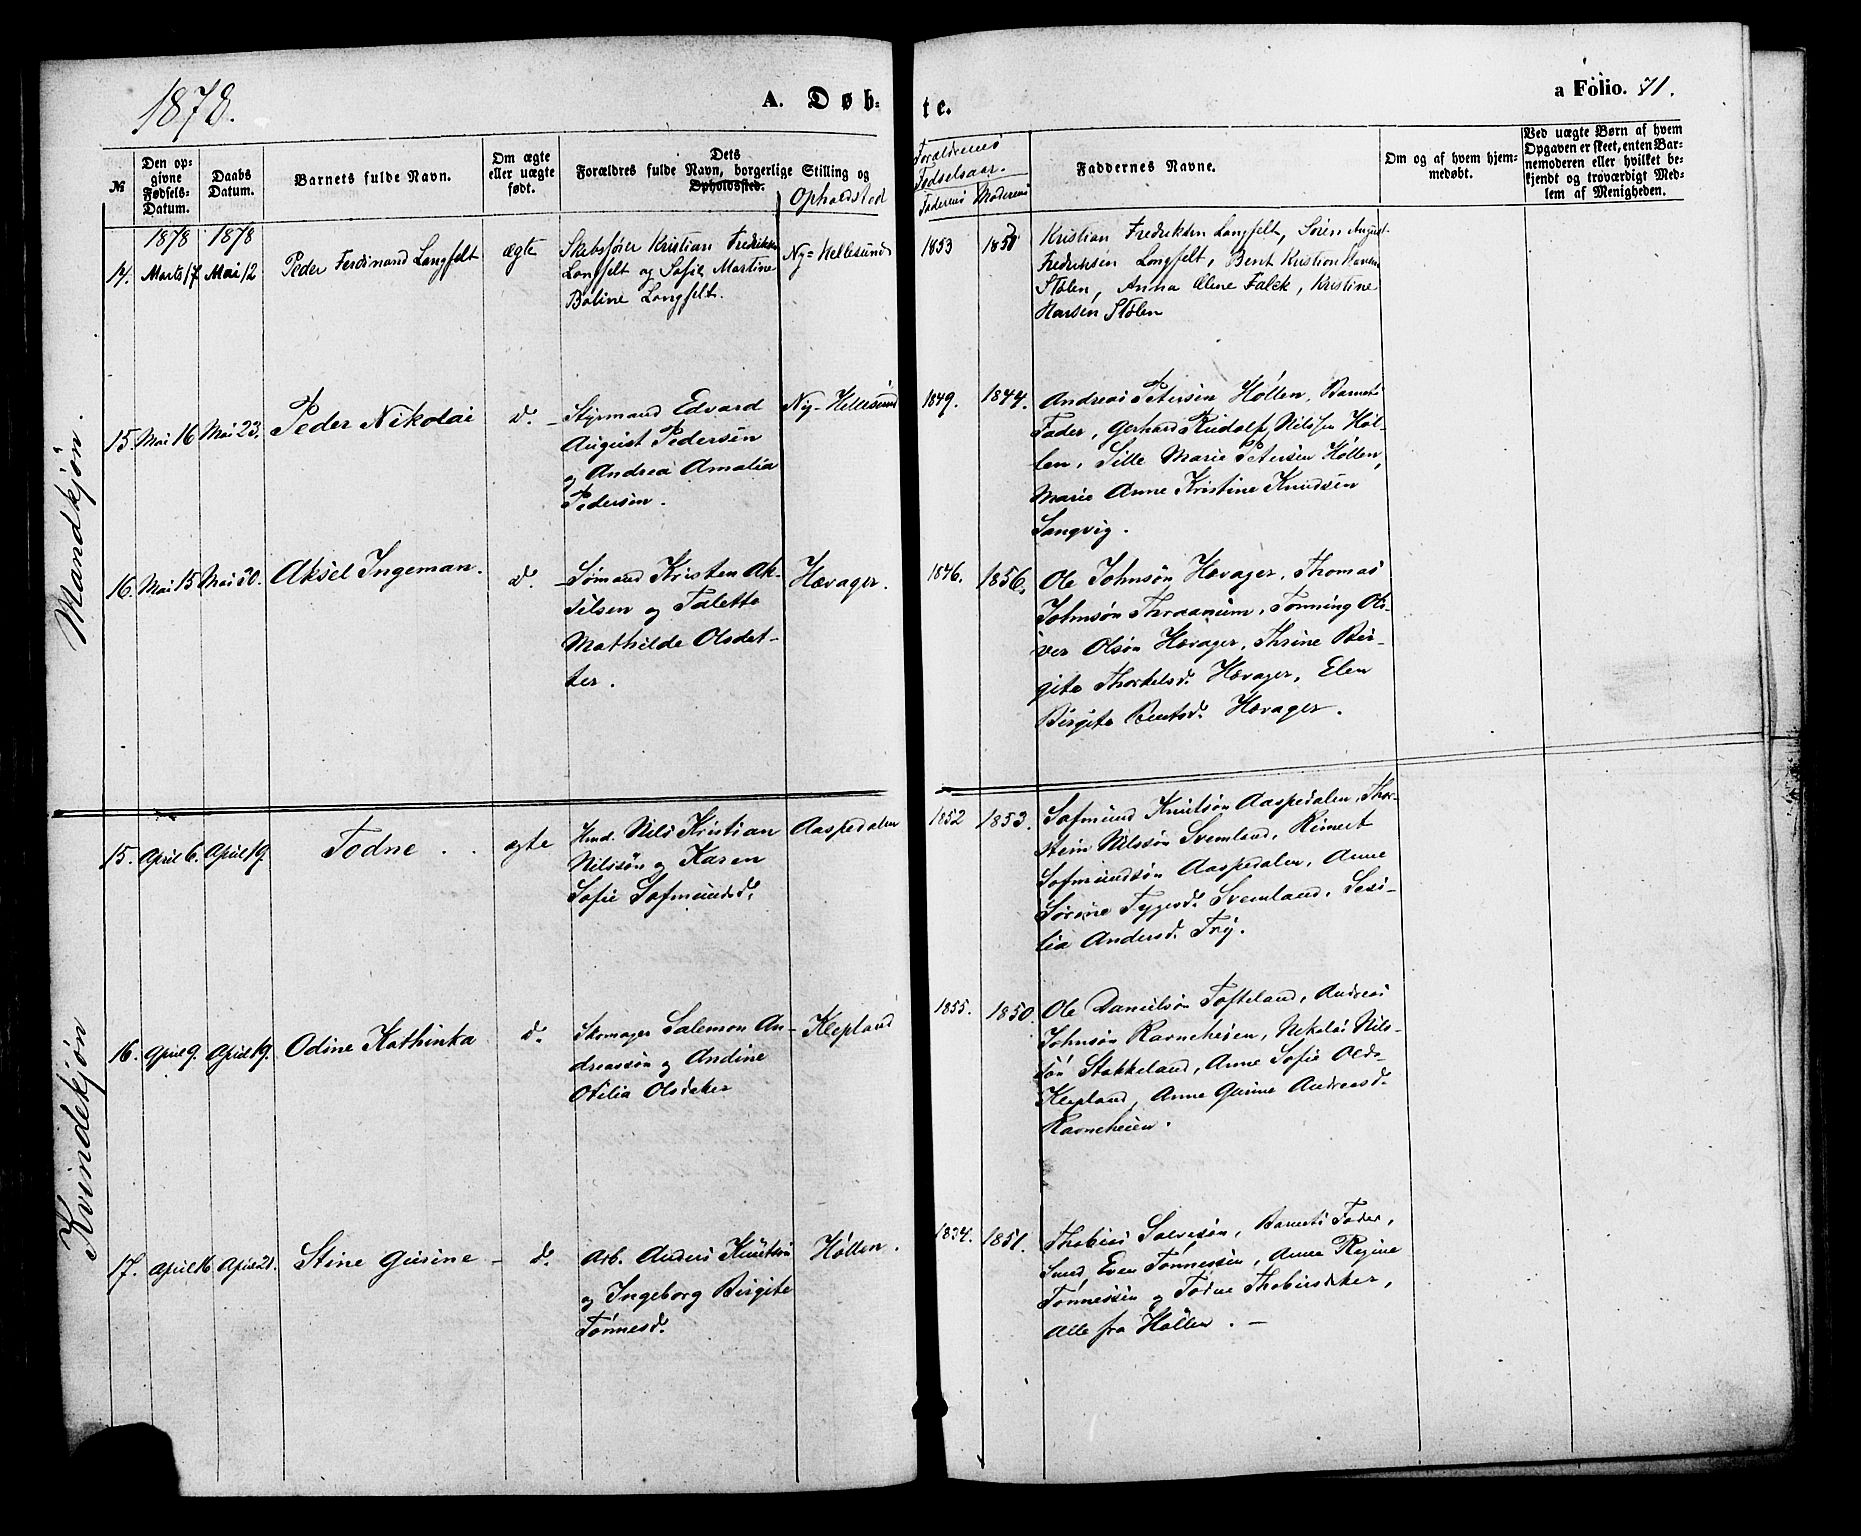 1878.
A. Døb-
te.
a Folio. 71.
№
Den op-
givne
Fødsels-
Datum.
Daabs
Datum.
Barnets fulde Navn.
Om ægte
eller uægte
født.
Dets
Forældres fulde Navn, borgerlige Stilling og
Opholdssted.
Opholdsted
Forældrenes
Fødselsaar.
Faderens
Moderens
Faddernes Navne.
Om og af hvem hjem-
medøbt.
Ved uægte Børn af hvem
Opgaven er skeet, enten Bar-
nemoderen eller hvilket be-
kjendt og troværdigt Med-
lem af Menigheden.
Mandkjøn.
1878
1878
14.
Marts 17
Mai 12
Peder Ferdinand Longfelt
ægte
Skibsfører Kristian Fredriksen
Longfelt og Sofie Martine
Boline Longfelt.
Ny-Hellesund
1853
Kristian Fredriksen Longfelt, Søren August
Fredriksen Longfelt, Bent Kristian Hansen
Stølen, Anna Oline Falck, Kristine
Hansen Stølen
15.
Mai 16
Mai 23.
Peder Nikolai
d.
Styrmand Edvard
August Pedersen
og Andrea Amalia
Pedersen.
Ny-Hellesund
1849.
1844.
Andreas Petersen Høllen, Barnets
Fader, Gerhard Rudolf Nilssen Høl-
len, Sille Marie Petersen Høllen,
Marie Anne Kristine Knudsen
Langvig.
16.
Mai 15
Mai 30.
Aksel Ingeman.
d.
Sømand Kristen Ak-
selsen og Talette
Mathilde Olsdat-
ter.
Hævager.
1846.
1856.
Ole Johnsøn Hævager, Thomas
Johnsøn Thraanum, Tønning Oli-
ver Olsøn Hævager, Thrine Bir-
gite Thorkelsd. Hævager, Elen
Birgite Bentsd. Hævager.
Kvindekjøn
15.
April 6.
April 19.
Todne
ægte
Hmd. Nils Kristian
Nilssøn og Karen
Sofie Sofmundsd.
Aaspedalen
1852
1853.
Sofmund Knutsøn Aaspedalen, Thor-
stein Nilssøn Svemland, Reinert
Sofmundsøn Aaspedalen, Anne
Sørine Tygesd. Svemland, Sesi-
lia Andersd. Try.
16.
April 9.
April 19.
Odine Kathinka
d.
Skomager Salemon An-
dreassøn og Andine
Otilia Olsdatter
Klepland
1855.
1850.
Ole Danielsøn Tofteland, Andreas
Johnsøn Ravneheien, Nikolai Nils-
søn Stokkeland, Anne Sofie Olsd.
Klepland, Anne Gurine Andreasd.
Ravneheien.
17.
April 16
April 21.
Stine Gusine
d.
Arb. Anders Knutsøn
og Ingeborg Birgite
Tønnesd.
Høllen.
1834.
1851.
Thobias Salvesøn, Barnets Fader,
Smed Even Tønnessen, Anne Regine
Tønnessen og Todne Thobiasdatter,
Alle fra Høllen.